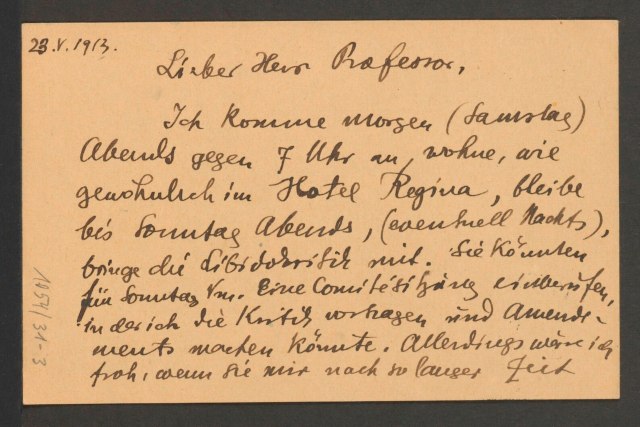 23.V.1913.
Lieber Herr Professor,
Ich komme morgen (Samstag)
Abends gegen 7 Uhr an, wohne, wie
gewöhnlich im Hotel Regina, bleibe
bis Sonntag Abends, (eventuell Nachts),
bringe die Libidokritik mit. Sie könnten
für Sonntag Vm. Eine Comitésitzung einberufen,
in der ich die Kritik vortragen und Amende-
ments machen könnte. Allerdings wäre ich
froh, wenn Sie mir nach so langer Zeit
1054/31-3